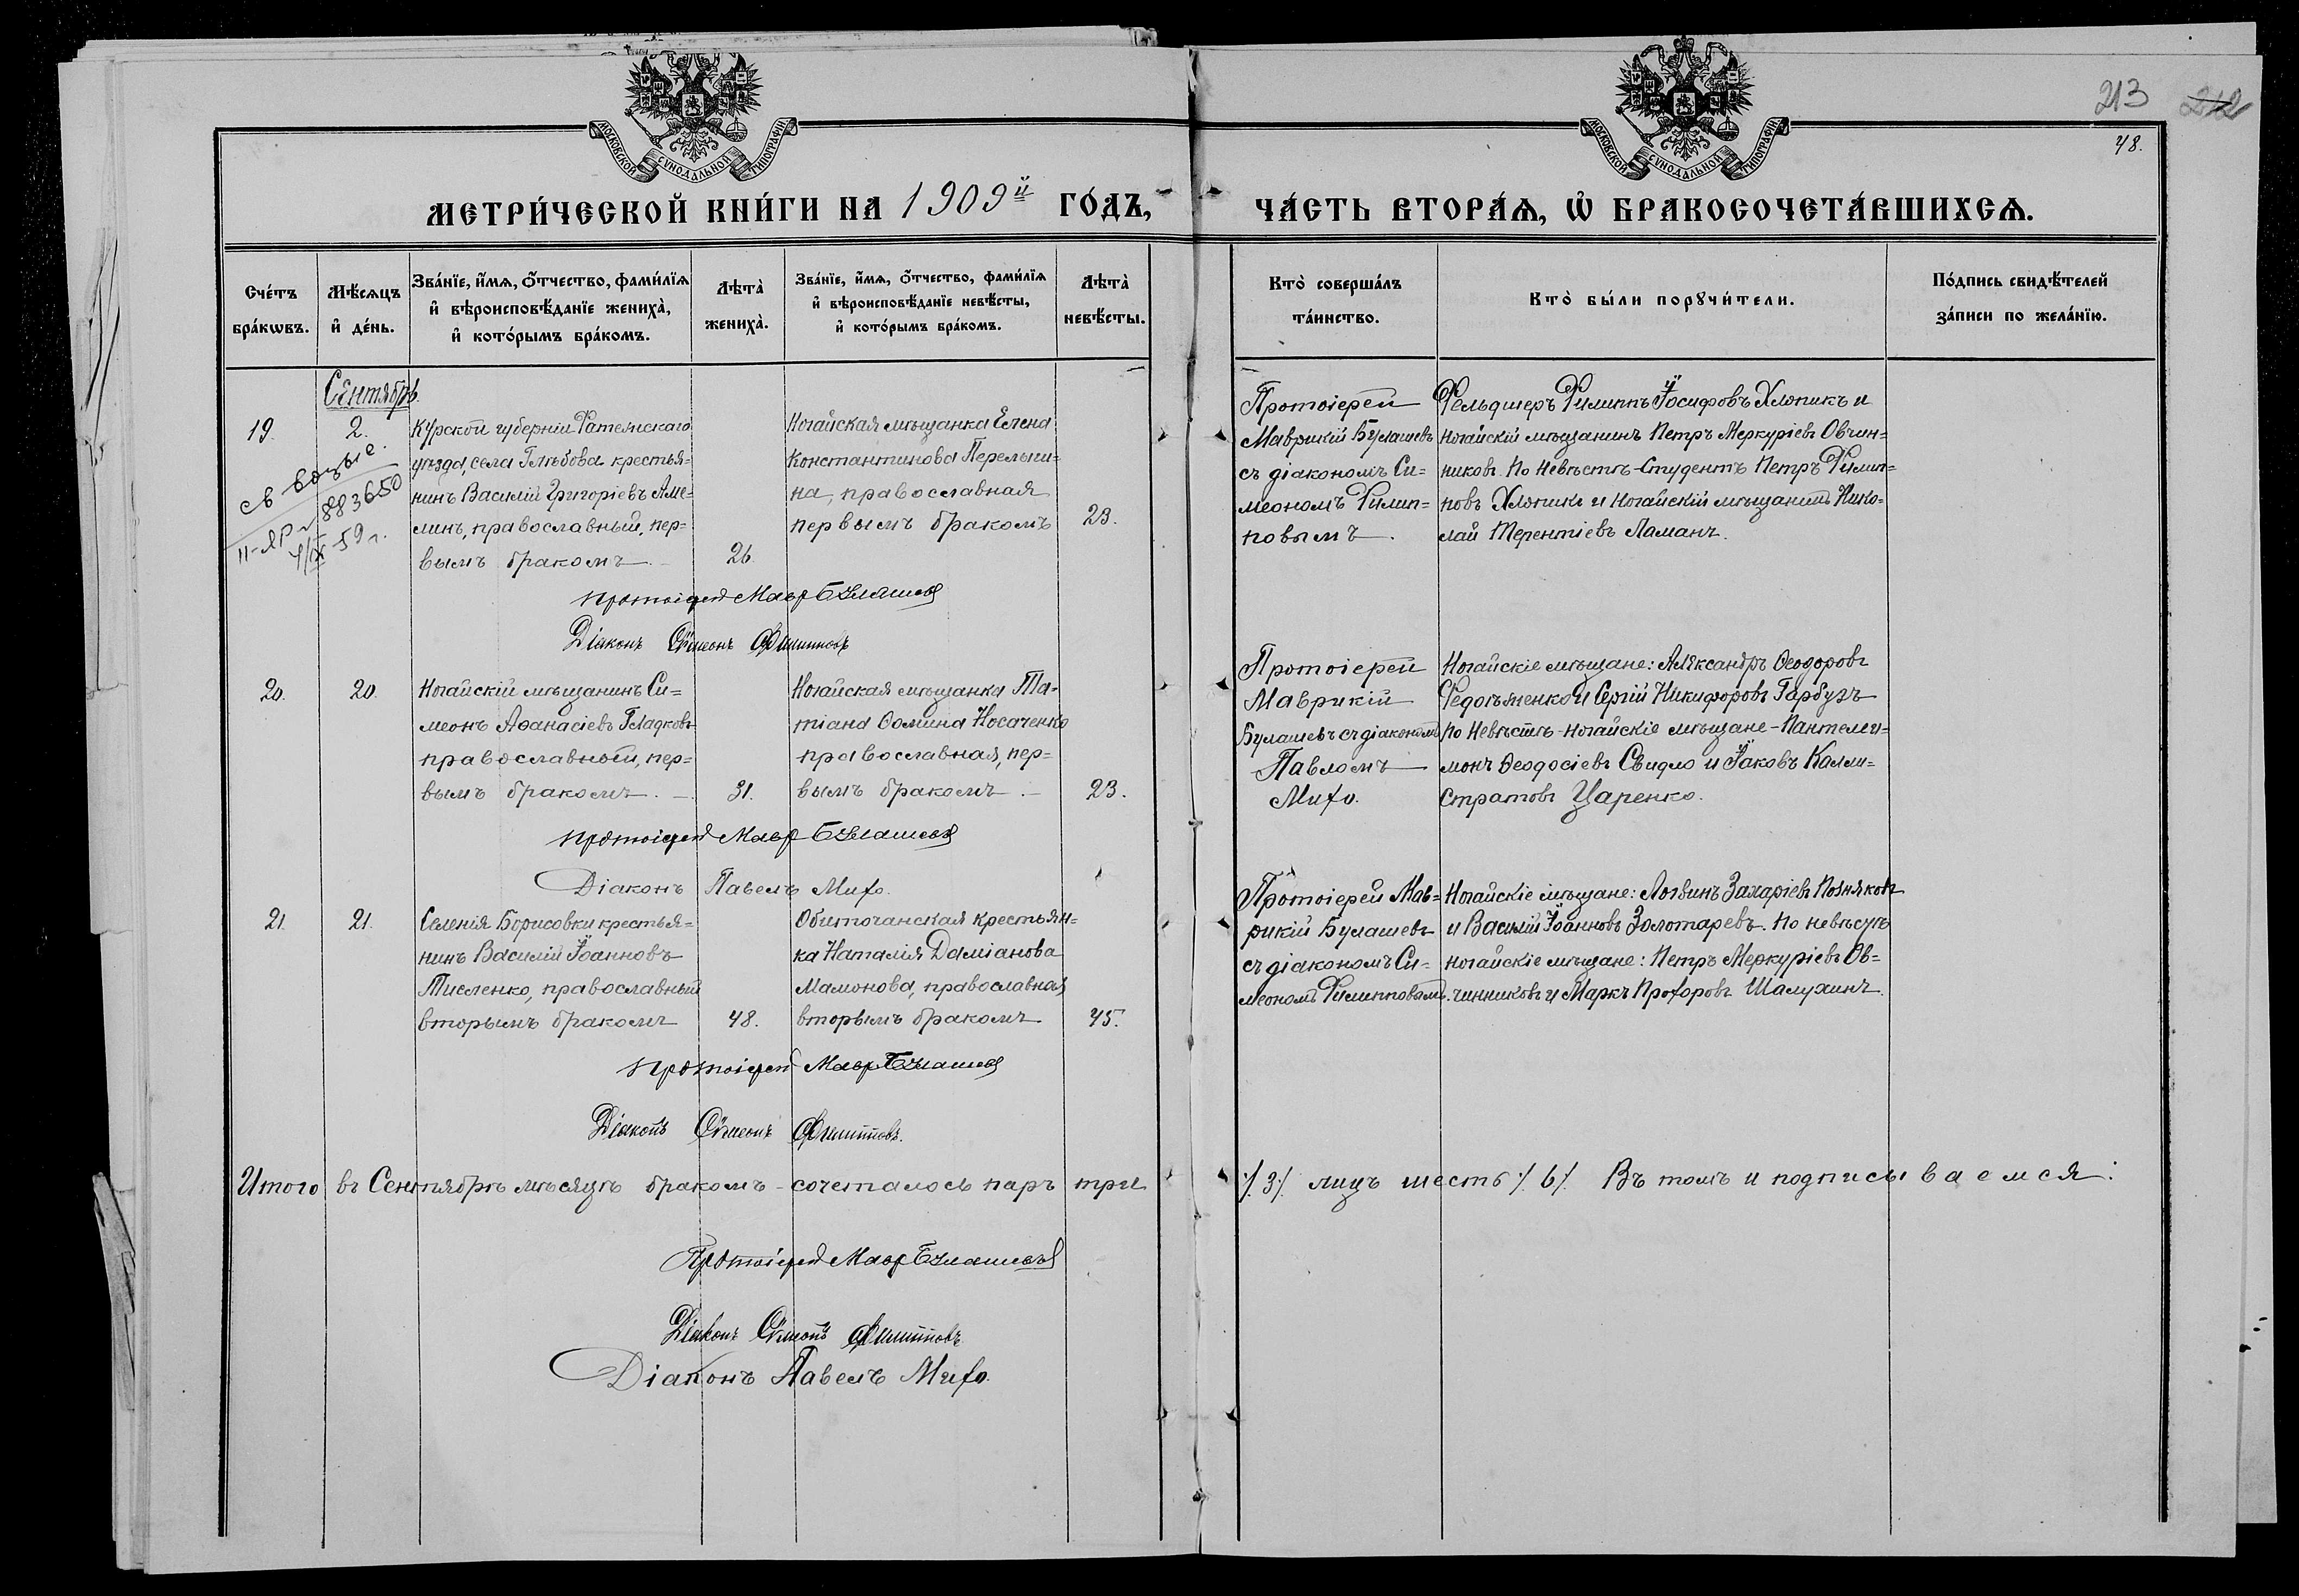 МОСКОВСКОЙ СѴНОДАЛЬНОЙ ТИПОГРАФІИ
МОСКОВСКОЙ СѴНОДАЛЬНОЙ ТИПОГРАФІИ
213 212
48.
МЕТРИ́ЧЕСКОЙ КНИ́ГИ НА 1909й ГО́ДЪ,
ЧА́СТЬ ВТОРА́Ѧ, Ѡ҆ БРАКОСОЧЕТА́ВШИХСѦ.
Сче́тъ бра́кѡвъ.
Мѣ́сѧцъ и҆ де́нь.
Зва́нїе, и҆́мѧ, ѻ҆́тчество, фами́лїѧ
и҆ вѣроисповѣ́данїе жениха̀,
и҆ кото́рымъ бра́комъ.
Лѣта̀ жениха̀.
Зва́нїе, и҆́мѧ, ѻ҆́тчество, фами́лїѧ
и҆ вѣроисповѣ́данїе невѣ́сты,
и҆ кото́рымъ бра́комъ.
Лѣта̀ невѣ́сты.
Кто̀ соверша́лъ та́инство.
Кто̀ бы́ли порꙋчи́тели.
По́дпись свидѣ́телей
за́писи по жела́нїю.
Сентябрь.
19.
2.
Курской губерніи Фатежскаго
уѣзда, села Глѣбова крестья=
нинъ Василій Григоріевъ Аме=
линъ, православный, пер=
вымъ бракомъ.
26
Ногайская мѣщанка Елена
Константинова Перельги=
на, православная
первымъ бракомъ
23.
Протоіерей
Маврикій Булашевъ
съ діакономъ Си=
меономъ Филип=
повымъ.
Фельдшеръ Филиппъ Іосифовъ Хлопикъ и
ногайскій мѣщанинъ Петръ Меркуріевъ Овчин=
никовъ. По невѣстѣ-Студентъ Петръ Филип=
повъ Хлопикъ и ногайскій мѣщанинъ Нико=
лай Терентіевъ Ламанъ.
883650
59 г.
Протоіерей Мавр Булашевъ
Діаконъ Сѵмеонъ Филипповъ
20.
20.
Ногайскій мѣщанинъ Си=
меонъ Аѳанасіевъ Гладковъ
православный, пер=
вымъ бракомъ. —
31.
Ногайская мѣщанка Та=
тіана Ѳомина Носаченко
православная, пер=
вымъ бракомъ. —
23.
Протоіерей
Маврикій
Булашевъ съ діакономъ
Павломъ
Михо.
Ногайскіе мѣщане: Александръ Ѳеодоровъ
Федосѣненко и Сергій Никифоровъ Гарбузъ
по невѣстѣ-ногайскіе мѣщане-Пантелеи=
монъ Ѳеодосіевъ Свидло и Іаковъ Калли=
стратовъ Царенко.
Протоіерей Мавр Булашевъ
Діаконъ Павелъ Михо.
21.
21.
Селенія Борисовки крестья=
нинъ Василій Іоанновъ
Тисленко, православный
вторымъ бракомъ
48.
Обиточанская крестьян=
ка Наталія Даміанова
Мамонова, православная
вторымъ бракомъ
45.
Протоіерей Мав=
рикій Булашевъ
съ діакономъ Си=
меономъ Филипповымъ.
Ногайскіе мѣщане: Логвинъ Захаріевъ Позняковъ
и Василій Іоанновъ Золотаревъ. По невѣстѣ
ногайскіе мѣщане: Петръ Меркуріевъ Ов=
чинниковъ и Маркъ Прохоровъ Шалухинъ.
Протоіерей Мавр Булашевъ
Діаконъ Сѵмеонъ Филипповъ.
Итого въ Сентябрѣ мѣсяцѣ бракомъ-сочеталось паръ три ./.3./. лицъ шесть ./.6./. Въ томъ и подписываемся:
Протоіерей Мавр Булашевъ
Діаконъ Сѵмеонъ Филипповъ
Діаконъ Павелъ Михо.